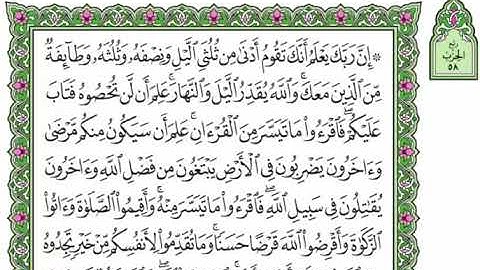 ۞ إِنَّ رَبَّكَ يَعْلَمُ أَنَّكَ تَقُومُ أَدْنَىٰ مِن ثُلُثَيِ ٱلَّيْلِ وَنِصْفَهُۥ وَثُلُثَهُۥ وَطَآئِفَةٌ
مِّنَ ٱلَّذِينَ مَعَكَۚ وَٱللَّهُ يُقَدِّرُ ٱلَّيْلَ وَٱلنَّهَارَۚ عَلِمَ أَن لَّن تُحْصُوهُ فَتَابَ
عَلَيْكُمْۖ فَٱقْرَءُوا۟ مَا تَيَسَّرَ مِنَ ٱلْقُرْءَانِۚ عَلِمَ أَن سَيَكُونُ مِنكُم مَّرْضَىٰ
وَءَاخَرُونَ يَضْرِبُونَ فِى ٱلْأَرْضِ يَبْتَغُونَ مِن فَضْلِ ٱللَّهِ وَءَاخَرُونَ
يُقَٰتِلُونَ فِى سَبِيلِ ٱللَّهِۖ فَٱقْرَءُوا۟ مَا تَيَسَّرَ مِنْهُۚ وَأَقِيمُوا۟ ٱلصَّلَوٰةَ وَءَاتُوا۟
ٱلزَّكَوٰةَ وَأَقْرِضُوا۟ ٱللَّهَ قَرْضًا حَسَنًاۚ وَمَا تُقَدِّمُوا۟ لِأَنفُسِكُم مِّنْ خَيْرٍ تَجِدُوهُ
ربع
الحزب
٥٨